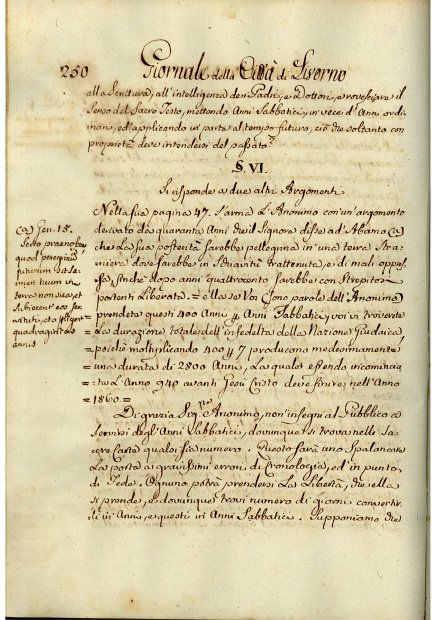 250
Giornale della Città di Livorno
alla Scrittura, all'intelligenza de Padri, e Dottori, e rovesciare il
senso del Sacro Testo, mettendo Anni Sabbatici, in vece d'Anni ordi
narj, ed applicando in parte al tempo futuro, ciò che soltanto con
proprietà deve intendersi del passato.
§. VI.
Si risponde a due altri Argomenti
Nella sua pagina 47. s'arma L'Anonimo con un'argomento
derivato da quaranta Anni che il Signore disse ad Abramo (a)
che la sua posterità sarebbe pellegrina in una terra stra
niera dove sarebbe in schiavitù trattenuta, e di mali oppres
sa, sinchè dopo anni quattrocento sarebbe con strepitosi
portenti liberata. = ella se Voi (sono parole dell'Anonimo)
= prendete questi 400 Anni p. Anni Sabbatici, voi vi troverete
= la durazione totale dell'infedeltà della Nazione Giudaica,
= poichè moltiplicando 400 p 7 producano medesimamente
= una durata di 2800 Anni, La quale essendo incomincia
= ta L'Anno 940 avanti Gesù Cristo deve finire nell'Anno
= 1860. =
(a) Gen. 15.
Scito praenoscens
quod peregrinum
futurum sit se
men tuum in
terra non sua, et
subjicient eos ser
vituti, et affligent
quadringentis
annis
Di grazia Sig.re Anonimo, non insegni al Pubblico a
servirsi degl'Anni Sabbatici, dovunque si trova nelle Sa
cre Carte qualsisia numero. Questo sarà uno spalancare
la porta a gravissimi errori di Cronologia, ed in punto
di Fede. Ognuno potrà prendersi la libertà, che ella
si prende, e dovunque trovi numero di giorni convertir
li in Anni, e questi in Anni Sabbatici. Supponiamo che